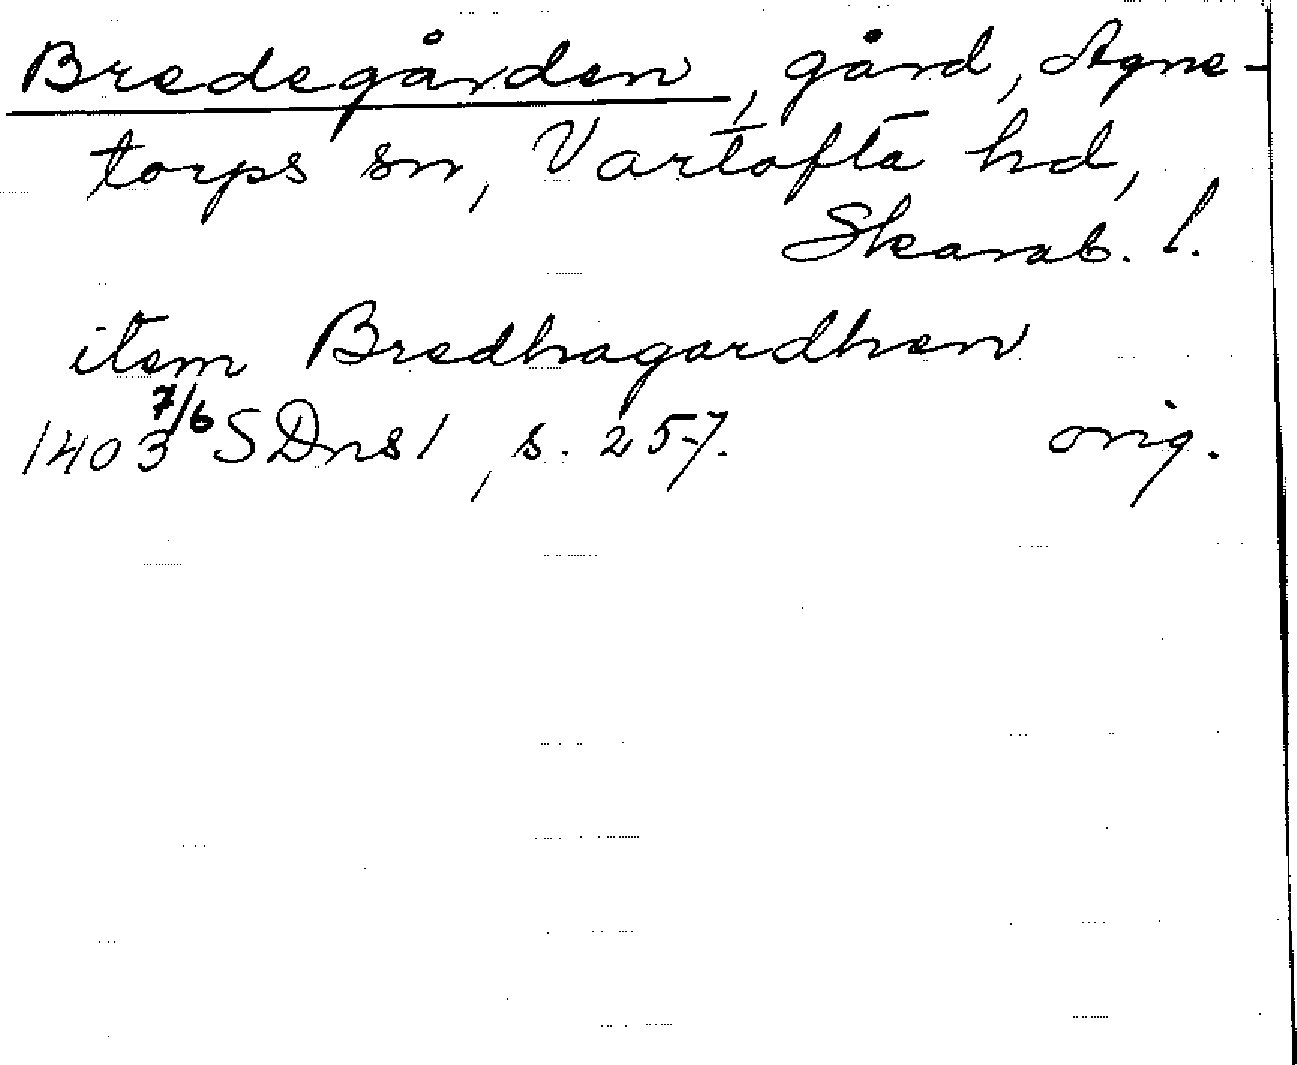 Bredegården, gård, Agne-
torps sn, Vartofta hd,
Skarab. l.
item Bredhagardhen
1403 7/6 SDns1, s. 257. orig.